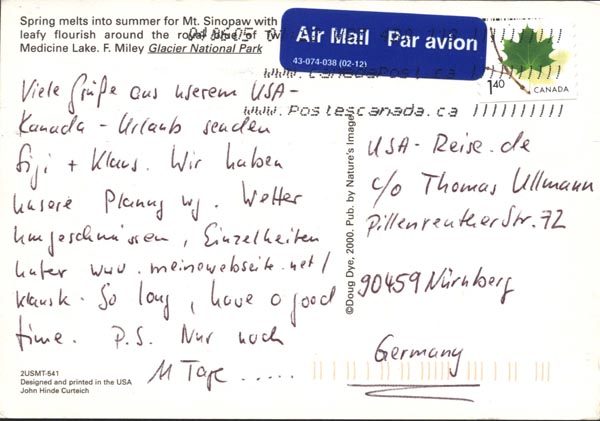 Spring melts into summer for Mt. Sinopaw with
leafy flourish around the royal blue of Tw
Medicine Lake. F. Miley Glacier National Park
Air Mail Par avion
43-074-038 (02-12)
1.40
CANADA
www.CanadaPost.ca
www.Postescanada.ca
Viele Grüße aus unserem USA-
Kanada-Urlaub senden
Sigi + Klaus. Wir haben
unsere Planung wg. Wetter
umgeschmissen, Einzelheiten
unter www.meinewebseite.net/
klausk. So long, have a good
time. P.S. Nur noch
11 Tage .....
©Doug Dye, 2000. Pub. by Nature's Images
USA-Reise.de
c/o Thomas Ullmann
Pillenreuther Str. 72
90459 Nürnberg
Germany
2USMT-541
Designed and printed in the USA
John Hinde Curteich